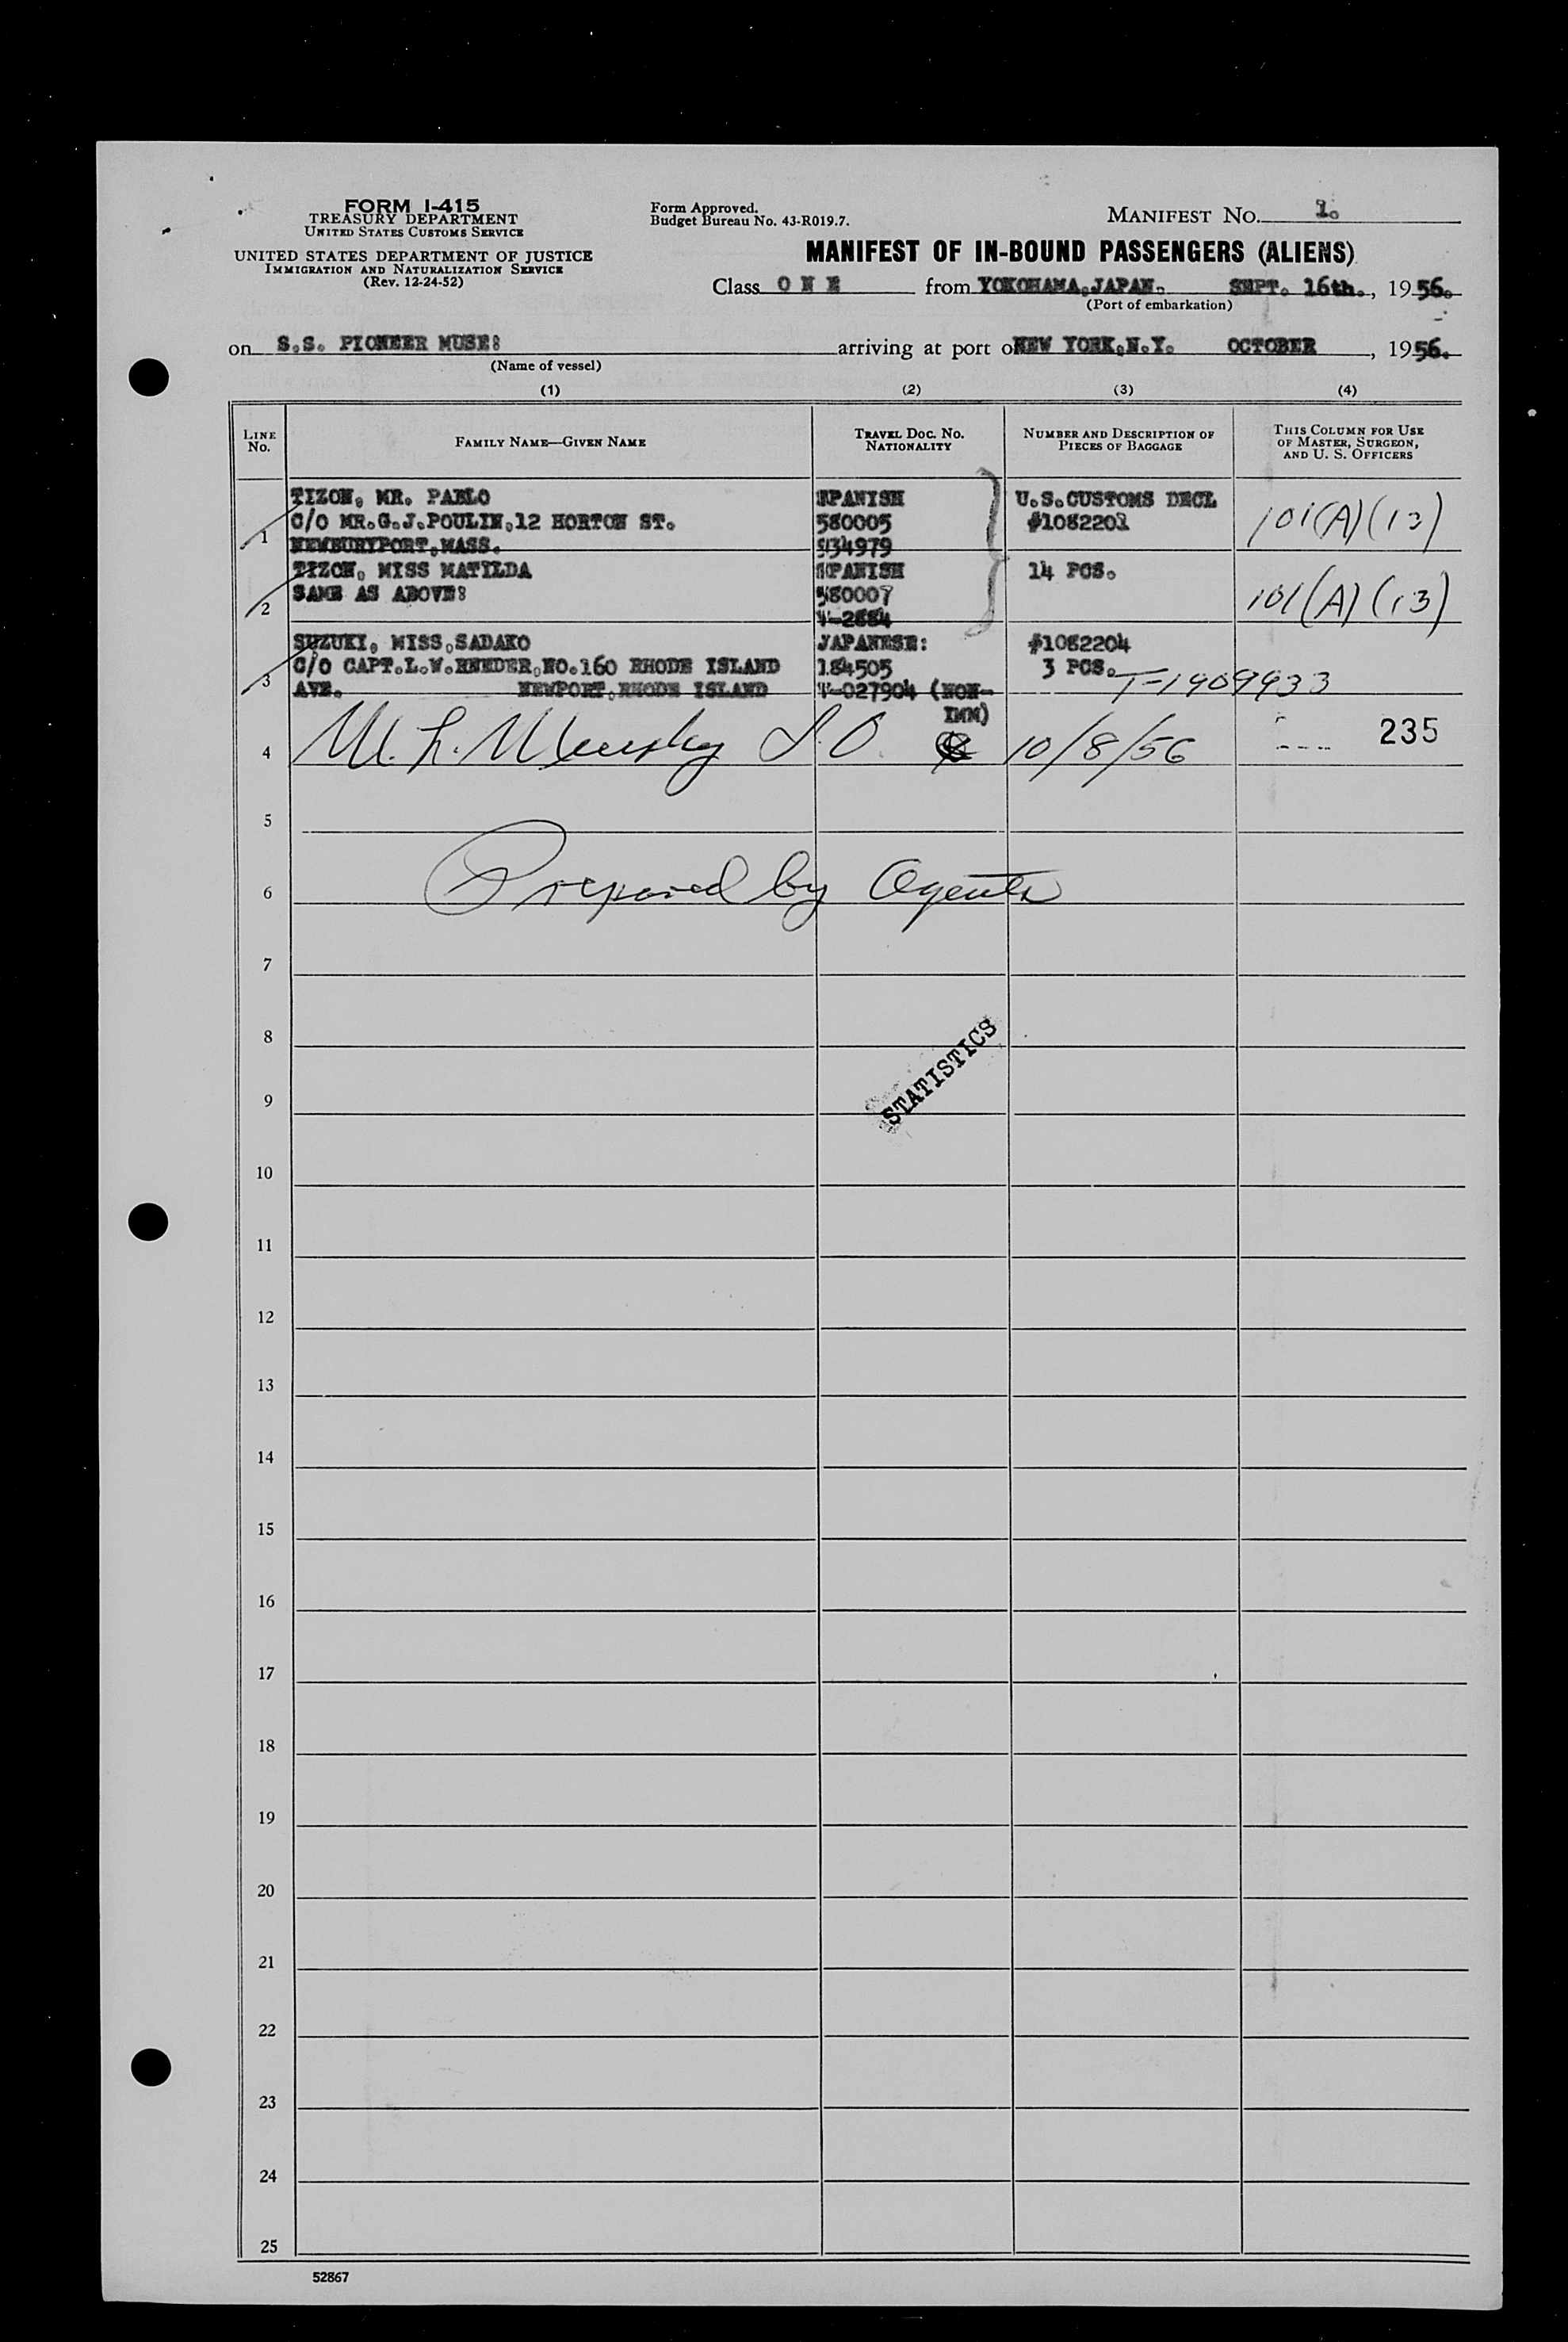 FORM I-415
TREASURY DEPARTMENT
UNITED STATES CUSTOMS SERVICE
UNITED STATES DEPARTMENT OF JUSTICE
IMMIGRATION AND NATURALIZATION SERVICE
(Rev. 12-24-52)
Form Approved.
Budget Bureau No. 43-R019.7.
MANIFEST NO. 1.
MANIFEST OF IN-BOUND PASSENGERS (ALIENS)
Class O N E from YOKOHAMA,JAPAN. SEPT. 16th., 1956.
(Port of embarkation)
on S.S. PIONEER MUSE: arriving at port of NEW YORK,N.Y. OCTOBER , 1956.
(Name of vessel)
(1) (2) (3) (4)
LINE NO. FAMILY NAME—GIVEN NAME TRAVEL DOC. NO. NATIONALITY NUMBER AND DESCRIPTION OF PIECES OF BAGGAGE THIS COLUMN FOR USE OF MASTER, SURGEON, AND U. S. OFFICERS
TIZON, MR. PABLO SPANISH U.S.CUSTOMS DECL
1 C/O MR.G.J.POULIN,12 HORTON ST. 580005 #1082201 101(A)(13)
NEWBURYPORT,MASS. 934979
TIZON, MISS MATILDA SPANISH 14 PCS.
2 SAME AS ABOVE: 580007 101(A)(13)
V-2884
SUZUKI, MISS,SADAKO JAPANESE: #1082204
3 C/O CAPT.L.W. NO.160 RHODE ISLAND 184505 3 PCS.
AVE. NEWPORT,RHODE ISLAND V-027904 (NON-IMM) T-1909933
4 M. L. 10/8/56 235
5
6 Prepared by Agents
7
8
STATISTICS
9
10
11
12
13
14
15
16
17
18
19
20
21
22
23
24
25
52867